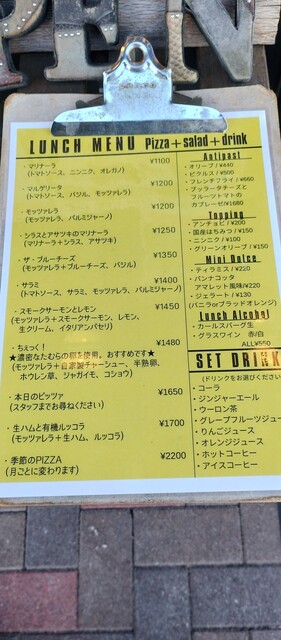 LUNCH MENU Pizza+salad+drink
・マリナーラ ¥1100
(トマトソース、ニンニク、オレガノ)
・マルゲリータ ¥1200
(トマトソース、バジル、モッツァレラ)
・モッツァレラ ¥1200
(モッツァレラ、パルミジャーノ)
・シラスとアサツキのマリナーラ ¥1250
(マリナーラ+シラス、アサツキ)
・ザ・ブルーチーズ ¥1350
(モッツァレラ+ブルーチーズ、バジル)
・サラミ ¥1400
(トマトソース、サラミ、モッツァレラ、パルミジャーノ)
・スモークサーモンとレモン ¥1450
(モッツァレラ+スモークサーモン、レモン、
生クリーム、イタリアンパセリ)
・ちぇっく! ¥1480
★濃密なたむらの卵を使用。おすすめです★
(モッツァレラ+自家製チャーシュー、半熟卵、
ホウレン草、ジャガイモ、コショウ)
・本日のピッツァ ¥1650
(スタッフまでお尋ねください)
・生ハムと有機ルッコラ ¥1700
(モッツァレラ+生ハム、ルッコラ)
・季節のPIZZA ¥2200
(月ごとに変わります)
Antipast
・オリーブ/¥440
・ピクルス/¥500
・フレンチフライ/¥660
・ブッラータチーズと
フルーツトマトの
カプレーゼ/¥1680
Topping
・アンチョビ/¥200
・国産はちみつ/¥150
・ニンニク/¥100
・グリーンオリーブ/¥150
Mini Dolce
・ティラミス/¥220
・パンナコッタ
アマレット風味/¥220
・ジェラート/¥130
(バニラorブラッドオレンジ)
Lunch Alcohol
・カールスバーグ生
・グラスワイン 赤/白
ALL¥550
SET DRINK
(ドリンクをお選びください
・コーラ
・ジンジャーエール
・ウーロン茶
・グレープフルーツジュー
・りんごジュース
・オレンジジュース
・ホットコーヒー
・アイスコーヒー